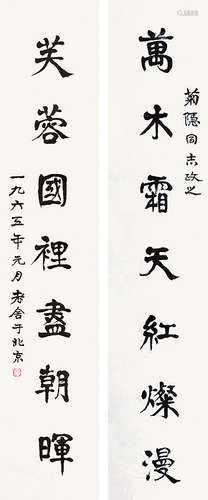 萬木霜天紅爛漫
菊隱同志政之
芙蓉國裡盡朝暉
一九六五年元月 老舍于北京